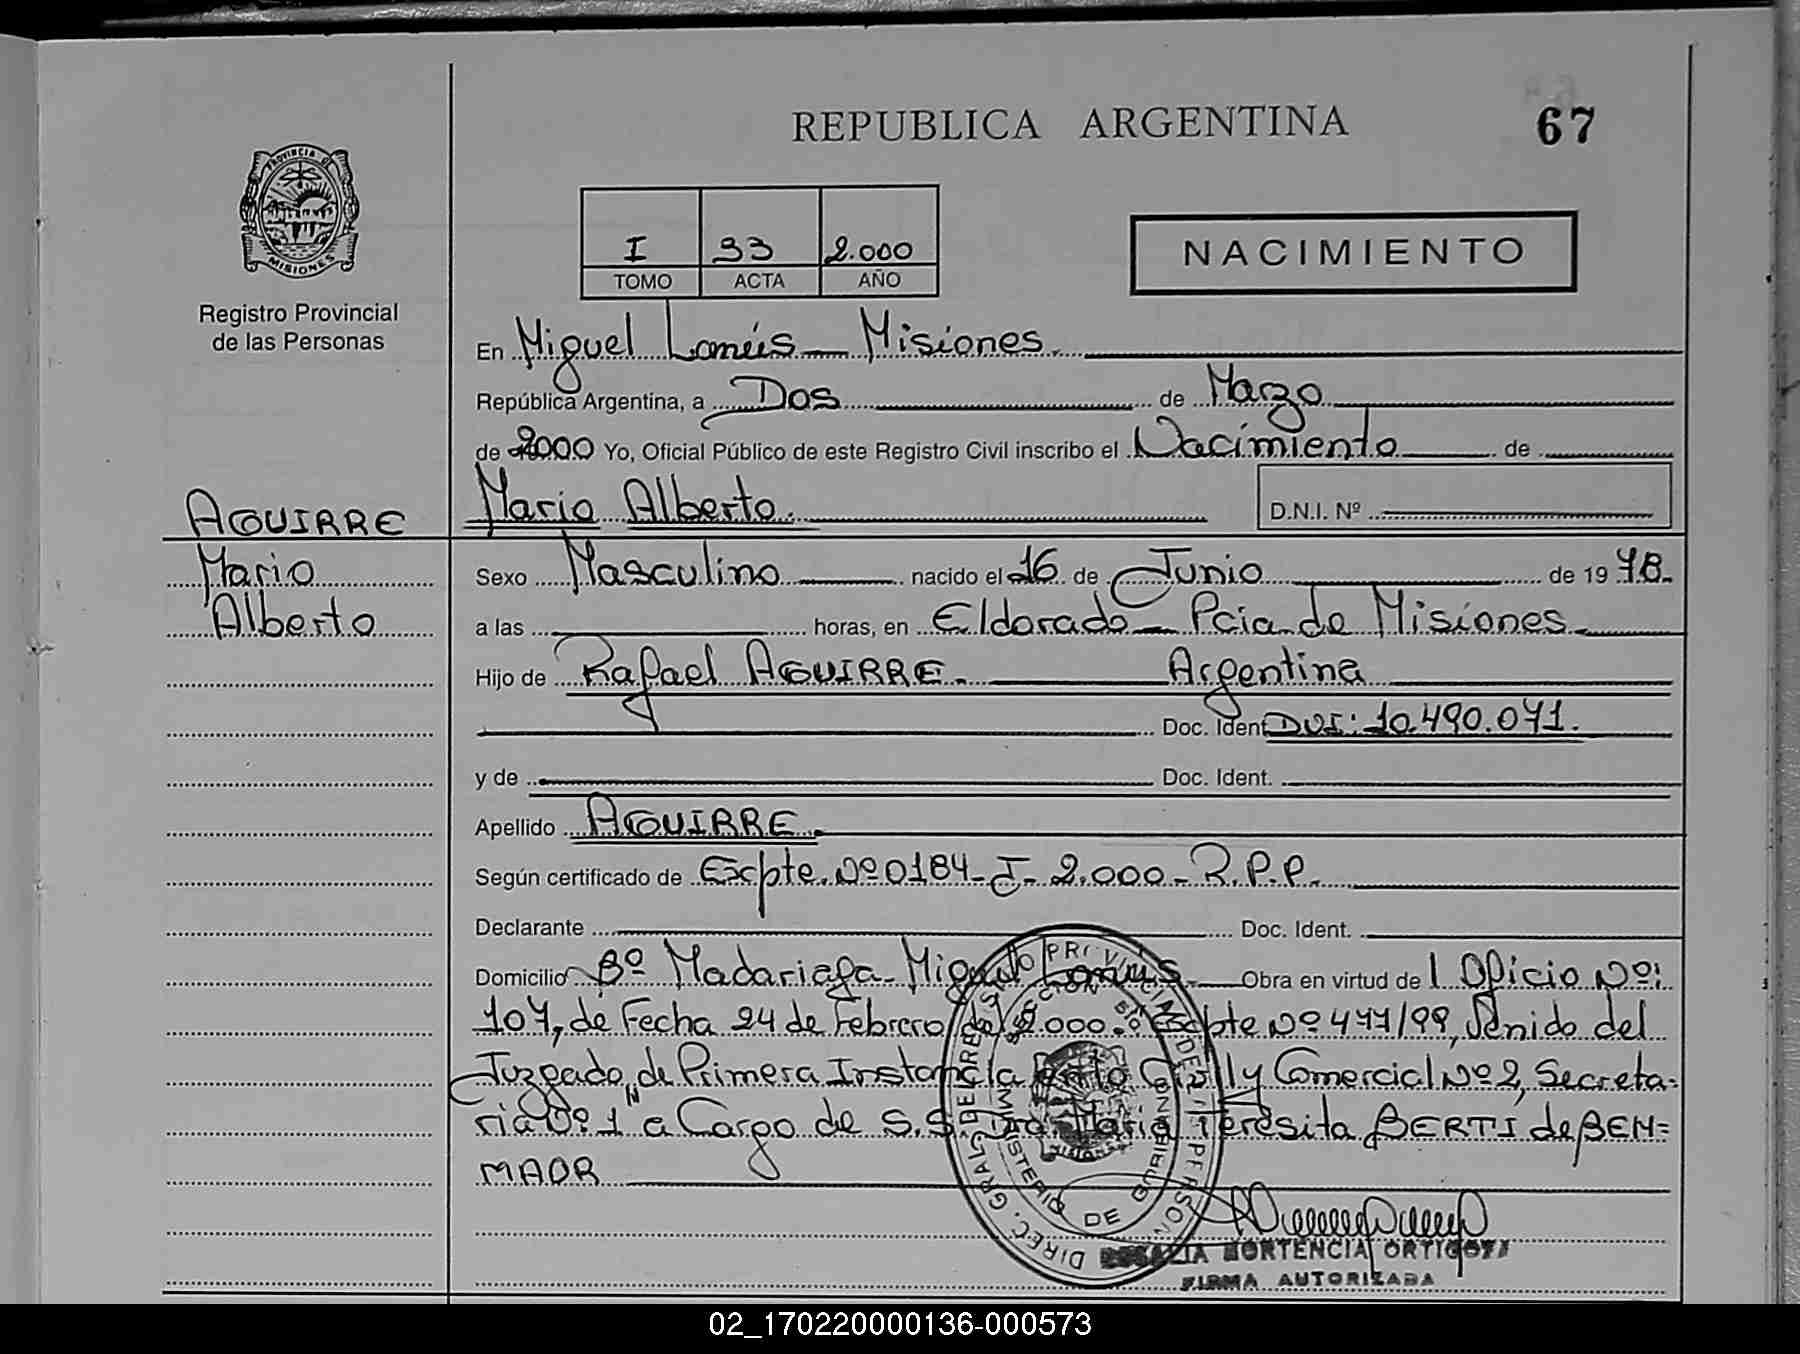 REPUBLICA ARGENTINA
67
PROVINCIA DE
MISIONES
Registro Provincial
de las Personas
I 33 2.000
TOMO ACTA AÑO
NACIMIENTO
En Miguel Lanús - Misiones.
República Argentina, a Dos de Marzo
de 2000 Yo, Oficial Público de este Registro Civil inscribo el Nacimiento de
AGUIRRE
Mario Alberto.
D.N.I. Nº
Mario
Sexo Masculino nacido el 16 de Junio de 19 78.
Alberto
a las horas, en Eldorado - Pcia de Misiones.
Hijo de Rafael AGUIRRE. Argentina
Doc. Ident. DUI: 10.490.071.
y de Doc. Ident.
Apellido AGUIRRE.
Según certificado de Excpte. Nº 0184-J-2.000-R.P.P.
Declarante Doc. Ident.
Domicilio Bº Madariaga - Miguel Lanús. Obra en virtud de l Oficio Nº:
107, de Fecha 24 de Febrero de 2.000. Excpte Nº 477/99, Venido del
Juzgado de Primera Instancia en lo Civil y Comercial Nº 2, Secreta-
ria Nº 1 "a Cargo de S.S. Dra. Maria Teresita BERTI de BEN=
MAOR
DIREC. GRAL. DEL REGISTRO PROVINCIAL DE LAS PERSONAS
MINISTERIO DE GOBIERNO
HORTENCIA ORTIGOZA
FIRMA AUTORIZADA
02_170220000136-000573